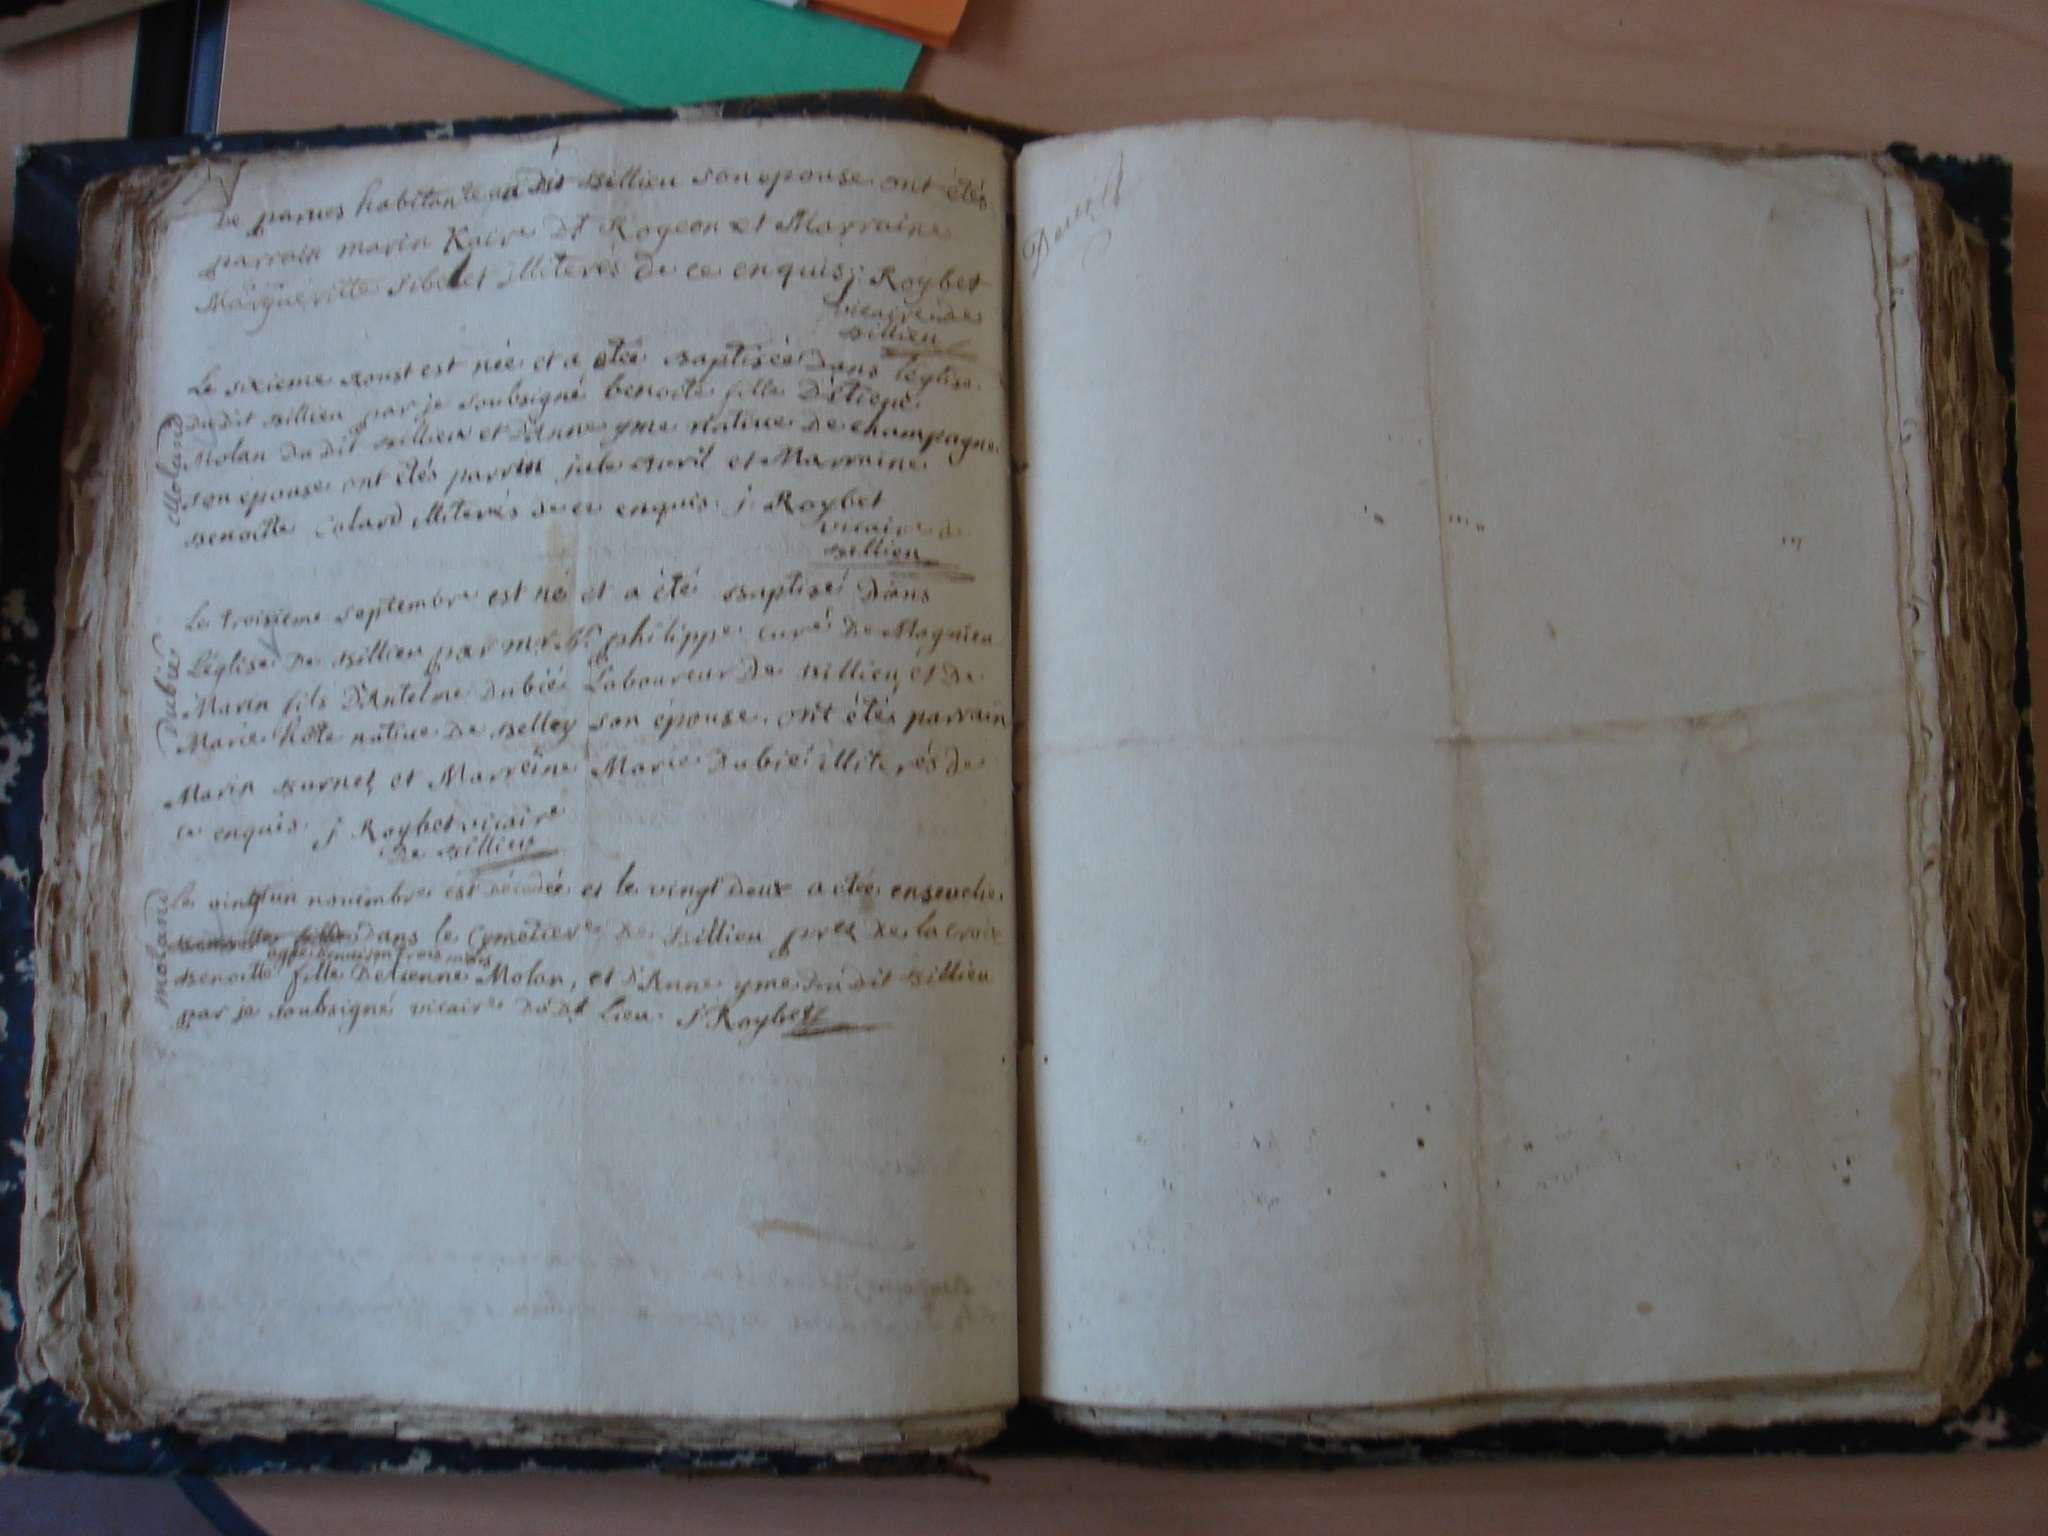 De parves habitante au dit Billieu son epouse ont étés
parrain marin Kaire dt Rogeon et Marraine
Marguéritte Sibellet illiterés de ce enquis j. Roybet
vicaire de
Billieu
Le sixieme Aoust est née et a étée Baptisée dans l'église
du dit Billieu par je soubsigné benoite fille d'étiene
Molan du dit Billieu et d'Anne yme native de champagne
son épouse ont étés parrin jule Avril et Marraine
Benoitte Colard illiterés de ce enquis. j. Roybet
vicaire de
Billieu
Moland
Le troisieme septembre est né et a été Baptisé dans
l'église de Billieu par mr philippe curé de Magnieu
Marin fils d'Antelme dubié Laboureur de Billieu et de
Marie hôte native de Belley son épouse. ont étés parrain
Marin Burnet et Marreine Marie Dubié illiterés de
ce enquis. j Roybet vicaire
de Billieu
Dubié
Le vingt un novembre est décédée et le vingt deux a étée ensevelie
dans le Cymetiere de Billieu prez de la croix
agée d'environ trois mois
Benoitte fille d'etienne Molan, et d'Anne yme du dit Billieu
par je soubsigné vicaire du dt Lieu. J Roybet
moland